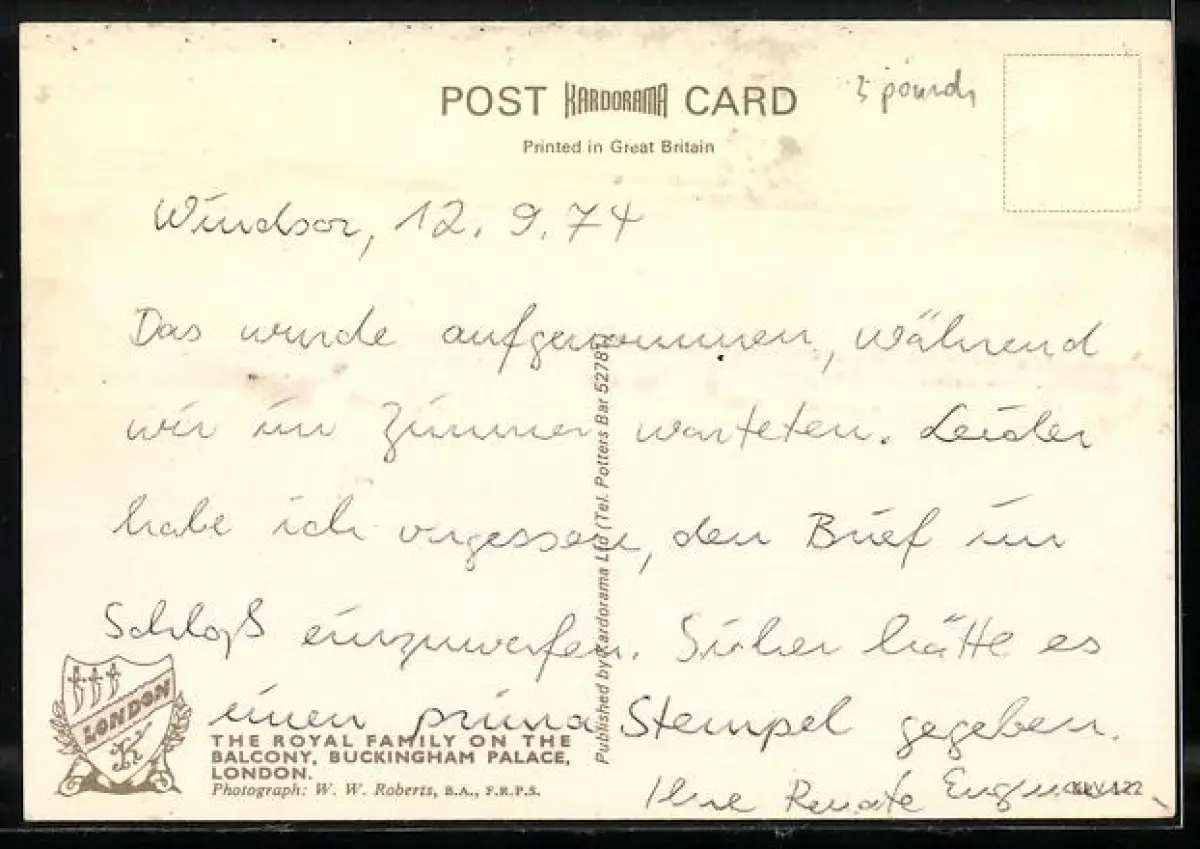 POST KARDORAMA CARD
5 pounds
Printed in Great Britain
Windsor, 12. 9. 74
Das wurde aufgenommen, während
wir im Zimmer warteten. Leider
habe ich vergessen, den Brief im
Schloß einzuwerfen. Sicher hätte es
einen prima Stempel gegeben.
Ihre Renate
Published by Kardorama Ltd (Tel. Potters Bar 5278
LONDON
K
THE ROYAL FAMILY ON THE
BALCONY, BUCKINGHAM PALACE,
LONDON.
Photograph: W. W. Roberts, B.A., F.R.P.S.